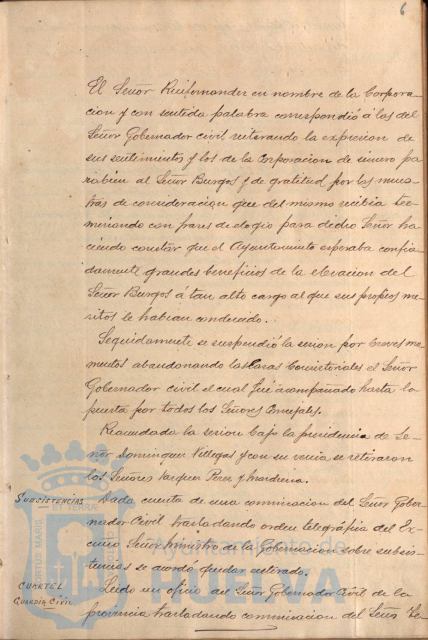 6
El Señor Ruifernandez en nombre de la Corpora-
cion y con sentida palabra correspondió á las del
Señor Gobernador civil reiterando la expresion de
sus sentimientos y los de la Corporacion de sincero pa
rabien al Señor Burgos y de gratitud por las mues-
tras de consideracion que del mismo recibia ter-
minando con frases de elogio para dicho Señor ha
ciendo constar que el Ayuntamiento esperaba confia
damente grandes beneficios de la elevacion del
Señor Burgos á tan alto cargo al que sus propios me
ritos le habian conducido.
Seguidamente se suspendió la sesion por breves mo
mentos abandonando las Casas Consistoriales el Señor
Gobernador civil el cual fué acompañado hasta la
puerta por todos los Señores Concejales.
Reanudada la sesion bajo la presidencia de Se-
ñor Dominguez Villegas y con su venia se retiraron
los Señores Vazquez Perez y Mardena.
SUBSISTENCIAS
Dada cuenta de una comunicacion del Señor Gober-
nador Civil trasladando orden telegráfica del Ex-
cmo Señor Ministro de la Gobernacion sobre subsis-
tencias se acordó quedar enterado.
CUARTEL
GUARDIA CIVIL
Leido un oficio del Señor Gobernador Civil de la
provincia trasladando comunicacion del Señor
Ayuntamiento de
HUELVA